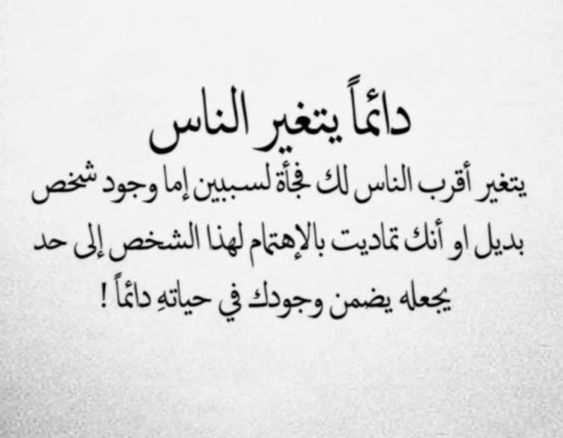 دائماً يتغير الناس
يتغير أقرب الناس لك فجأة لسببين إما وجود شخص
بديل او أنك تماديت بالإهتمام لهذا الشخص إلى حد
يجعله يضمن وجودك في حياتهِ دائماً !